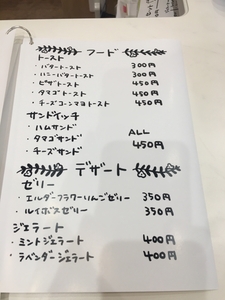 フード
トースト
・バタートースト 300円
・ハニーバタートースト 300円
・ピザトースト 450円
・タマゴトースト 450円
・チーズコーンマヨトースト 450円
サンドイッチ
・ハムサンド
・タマゴサンド ALL 450円
・チーズサンド
デザート
ゼリー
・エルダーフラワーりんごゼリー 350円
・ルイボスゼリー 350円
ジェラート
・ミントジェラート 400円
・ラベンダージェラート 400円